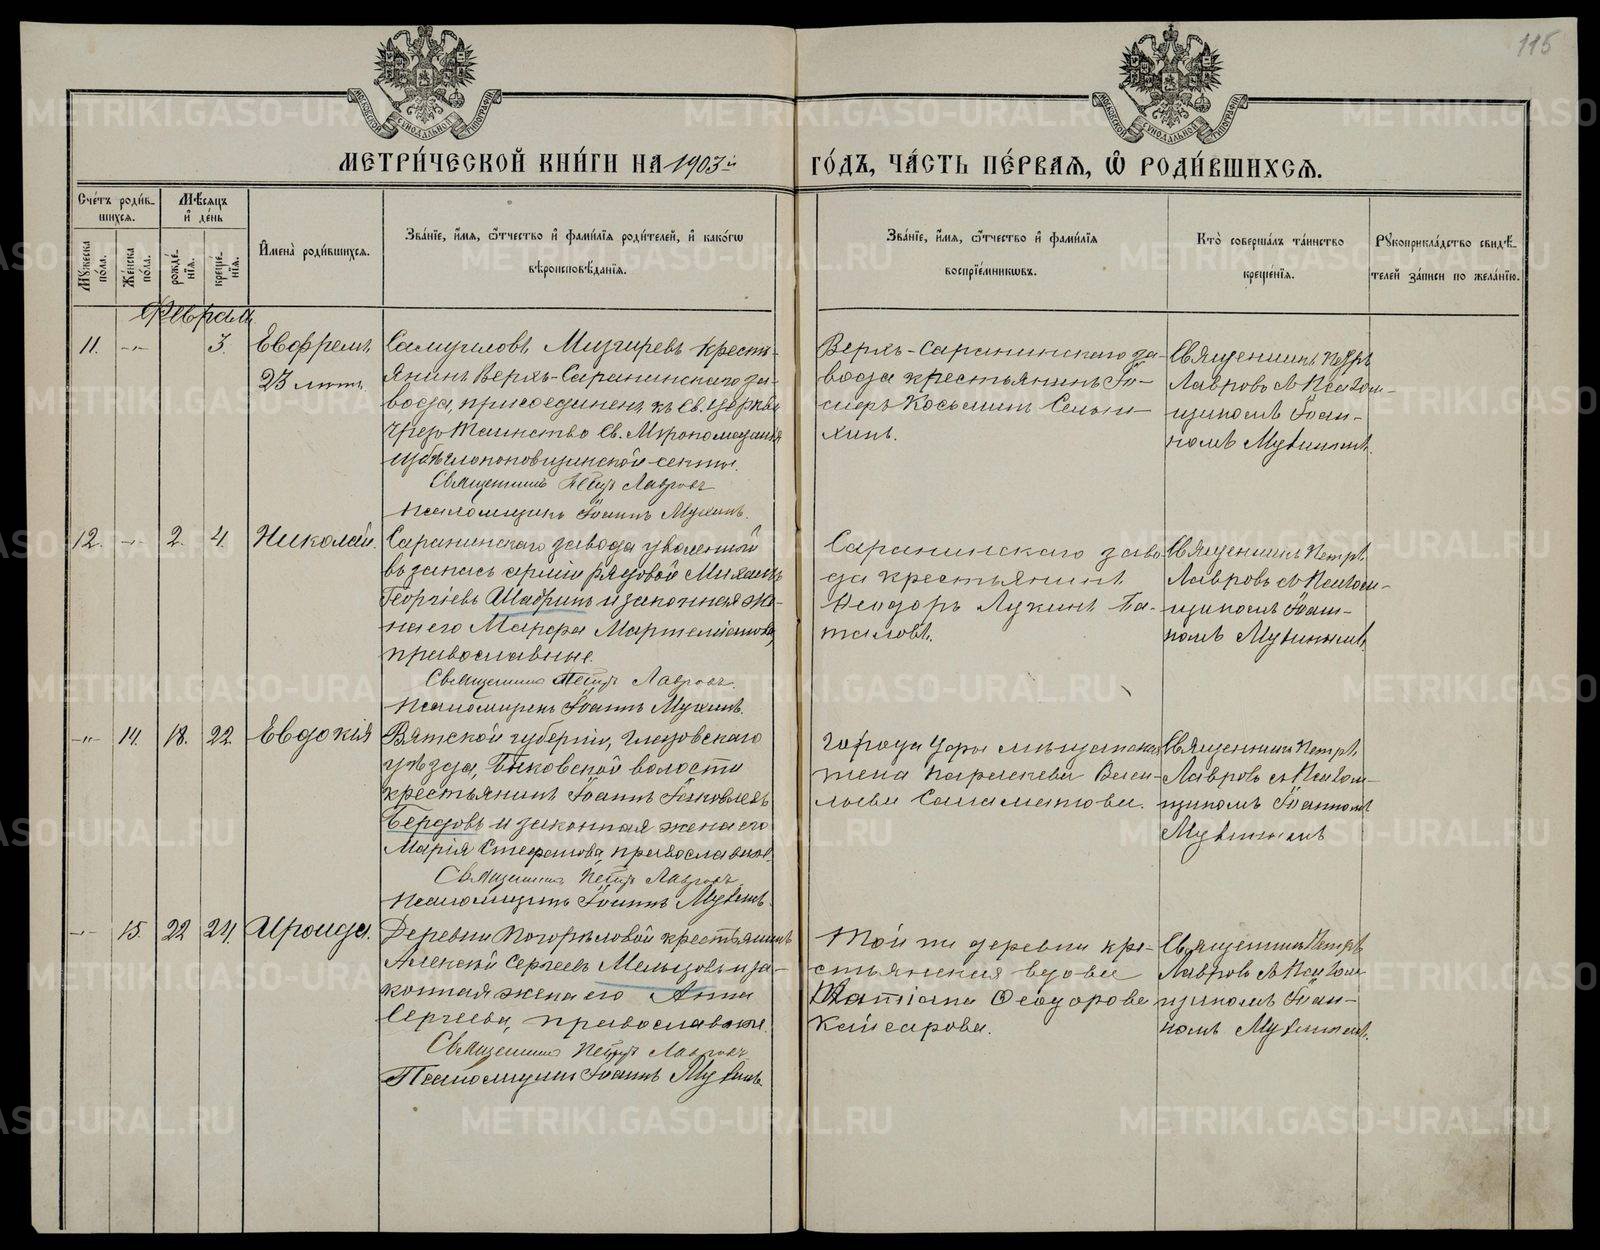 115
МЕТРИ́ЧЕСКОЙ КНИ́ГИ НА 1903й ГО́ДЪ, ЧА́СТЬ ПЕ́РВАЯ, Ѡ҆ РОДИ́ВШИХСЯ.
Сче́тъ роди́в-
шихся.
Мѣ́сяцъ
и҆ де́нь
Му́жеска по́ла.
Же́нска по́ла.
рожде́-
нїя.
креще́-
нїя.
И҆мена̀ роди́вшихся.
Зва́нїе, и҆́мя, ѻ҆́тчество и҆ фами́лїя роди́телей, и҆ како́гѡ
вѣроисповѣ́данїя.
Зва́нїе, и҆́мя, ѻ҆́тчество и҆ фами́лїя
воспрїе́мникѡвъ.
Кто̀ соверша́лъ та́инство
креще́нїя.
Рꙋкоприкла́дство свидѣ́-
телей за́писи по жела́нїю.
Февраль
11. -"- 3. Евфремъ
23 лѣтъ
Самуиловъ Мизгиревъ кресть-
янинъ Верхъ-Саранинскаго за-
вода, присоединенъ къ Св. Церкви
чрезъ Таинство Св. Мѵропомазанія
изъ бѣглопоповщинской секты.
Священникъ Петръ Лавровъ
Псаломщикъ Іоаннъ Мухинъ.
Верхъ-Саранинскаго за-
вода крестьянинъ
Косьминъ
Священникъ Петръ
Лавровъ съ Псалом-
щикомъ Іоан-
номъ Мухинымъ.
12. -"- 2. 4. Николай.
Саранинскаго завода уволенный
въ запасъ арміи рядовой Михаилъ
Георгіевъ Шабринъ и законная же-
на его Марѳа
православные.
Священникъ Петръ Лавровъ.
Псаломщикъ Іоаннъ Мухинъ.
Саранинскаго заво-
да крестьянинъ
Ѳеодоръ Лукинъ Па-
таловъ.
Священникъ Петръ
Лавровъ съ Псалом-
щикомъ Іоан-
номъ Мухинымъ.
-"- 14. 18. 22. Евдокія
Вятской губерніи, Глазовскаго
уѣзда, волости
крестьянинъ Іоаннъ Іаковлевъ
Бердовъ и законная жена его
Марія Стефанова, православные.
Священникъ Петръ Лавровъ
Псаломщикъ Іоаннъ Мухинъ.
города Уфы мѣщанская
жена Параскева Васи-
льева Саламатова.
Священникъ Петръ
Лавровъ съ Псалом-
щикомъ Іоанномъ
Мухинымъ
-"- 15. 22 24. Ираида.
Деревни Погорѣловой крестьянинъ
Алексѣй Сергеевъ Мельцовъ и за-
конная жена его Анна
Сергеева, православные.
Священникъ Петръ Лавровъ
Псаломщикъ Іоаннъ Мухинъ.
Той же деревни кре-
стьянская вдова
Татіана Ѳеодорова
Кайсарова.
Священникъ Петръ
Лавровъ съ Псалом-
щикомъ Іоан-
номъ Мухинымъ.
METRIKI.GASO-URAL.RU